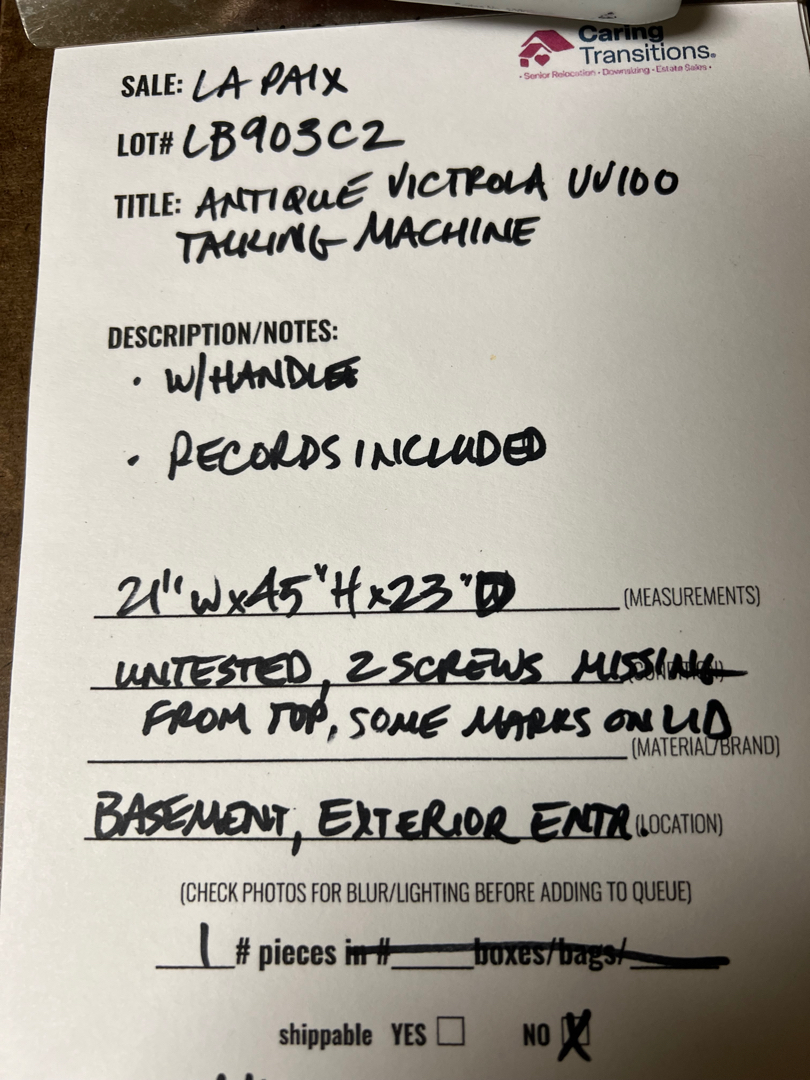 Caring
Transitions.
• Senior Relocation • Downsizing • Estate Sales •
SALE: LA PAIX
LOT# LB903C2
TITLE: ANTIQUE VICTROLA VV100
TALKING MACHINE
DESCRIPTION/NOTES:
• W/HANDLE
• RECORDS INCLUDED
21"W x 45"H x 23"D (MEASUREMENTS)
UNTESTED, 2 SCREWS MISSING (CONDITION)
FROM TOP, SOME MARKS ON LID
(MATERIAL/BRAND)
BASEMENT, EXTERIOR ENTR. (LOCATION)
(CHECK PHOTOS FOR BLUR/LIGHTING BEFORE ADDING TO QUEUE)
1 # pieces in #____boxes/bags/____
shippable YES NO X